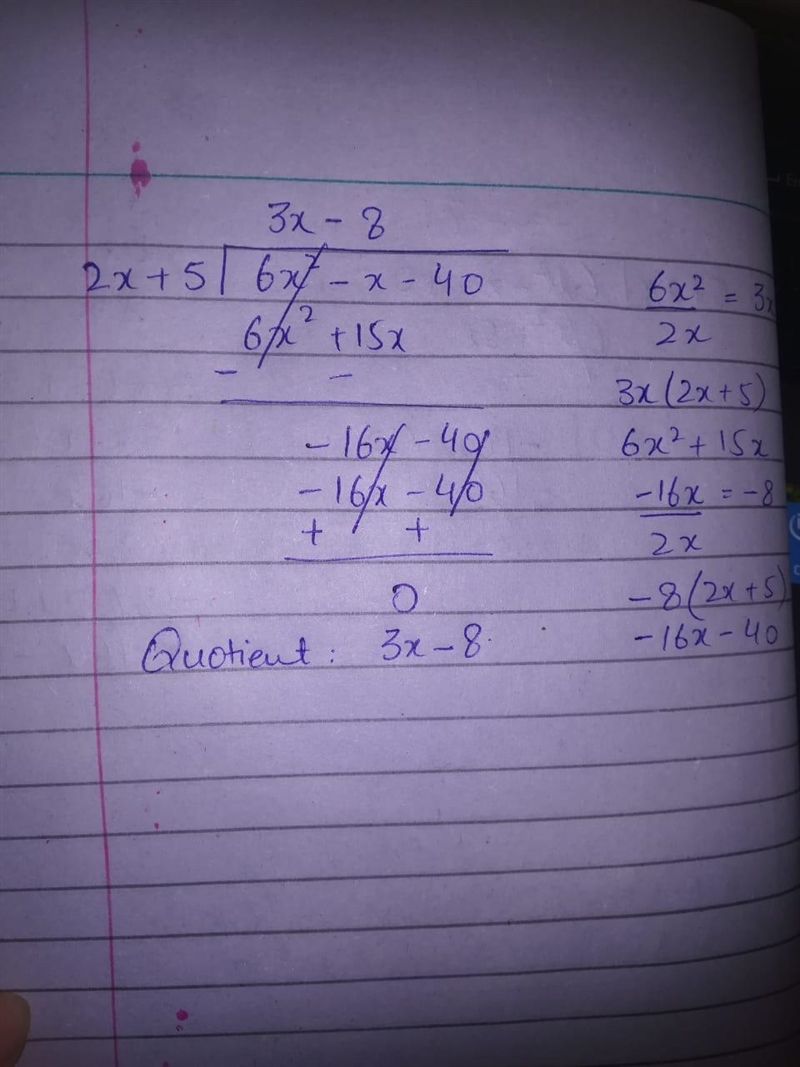 3x - 8
2x + 5 | 6x² - x - 40
6x² + 15x
- -
-16x - 40
-16x - 40
+ +
0
Quotient : 3x - 8.
6x² = 3x
2x
3x (2x + 5)
6x² + 15x
-16x = -8
2x
-8 (2x + 5)
-16x - 40